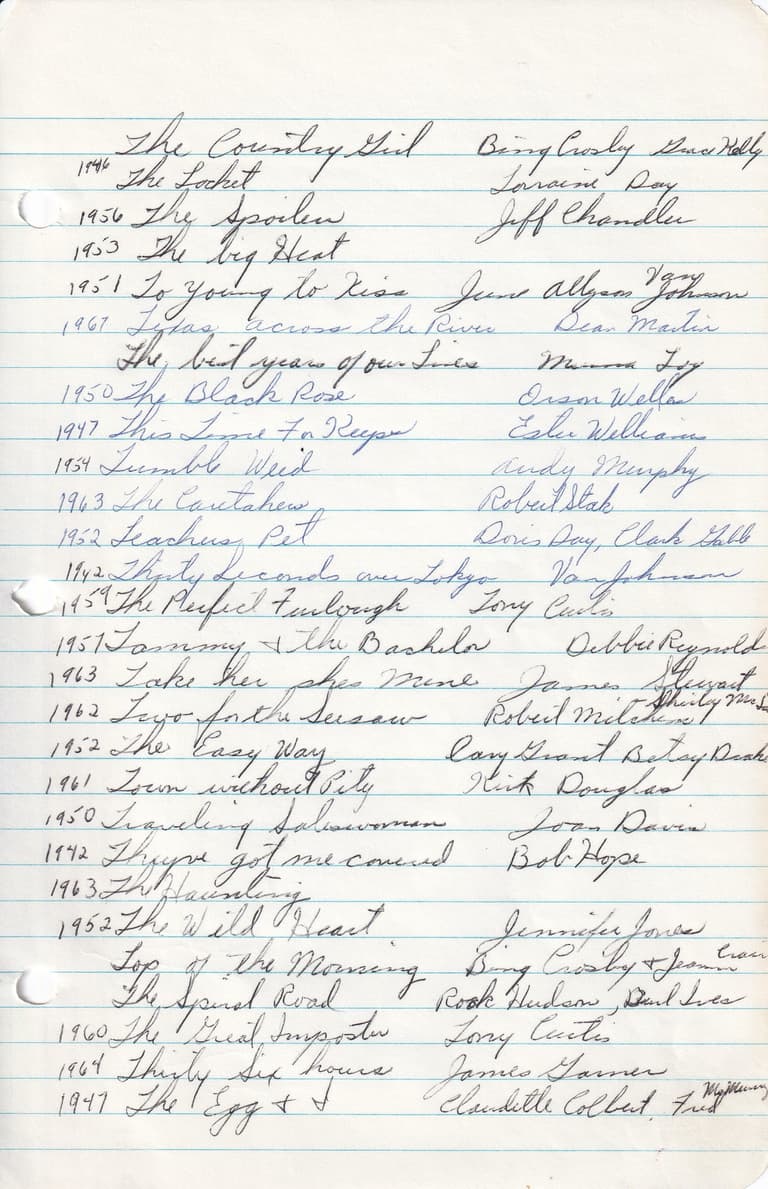 The Country Girl Bing Crosby Grace Kelly
1946 The Locket Lorraine Day
1956 The Spoilers Jeff Chandler
1953 The big Heat
1951 To Young to Kiss June Allyson Van Johnson
1967 Texas across the River Dean Martin
The best years of our Lives Myrna Loy
1950 The Black Rose Orson Welles
1947 This Time For Keeps Ester Williams
1954 Tumble Weed Audy Murphy
1963 The Caretakers Robert Stak
1952 Teachers Pet Doris Day, Clark Gable
1942 Thirty Seconds over Tokyo Van Johnson
1959 The Perfect Furlough Tony Curtis
1957 Tammy & the Bachelor Debbie Reynolds
1963 Take her shes Mine James Stewart
1962 Two for the Seesaw Robert Mitchum Shirley
1952 The Easy Way Cary Grant Betsy Drake
1961 Town without Pity Kirk Douglas
1950 Traveling Saleswoman Joan Davis
1942 Theyve got me covered Bob Hope
1963 The Haunting
1952 The Wild Heart Jennifer Jones
Top of the Morning Bing Crosby & Jeann Crain
The Spiral Road Rock Hudson, Burl Ives
1960 The Great Imposter Tony Curtis
1964 Thirty Six hours James Garner
1947 The Egg & I Claudette Colbert, Fred McMurry